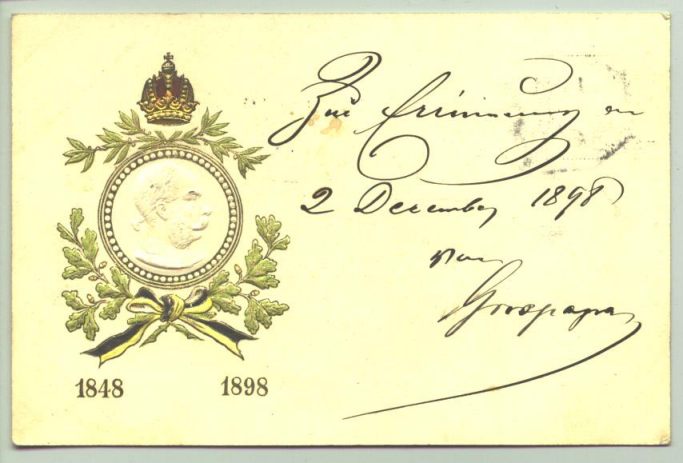 Zur Erinnerung an
2 Dezember 1898
von
Grosspapa
1848 1898